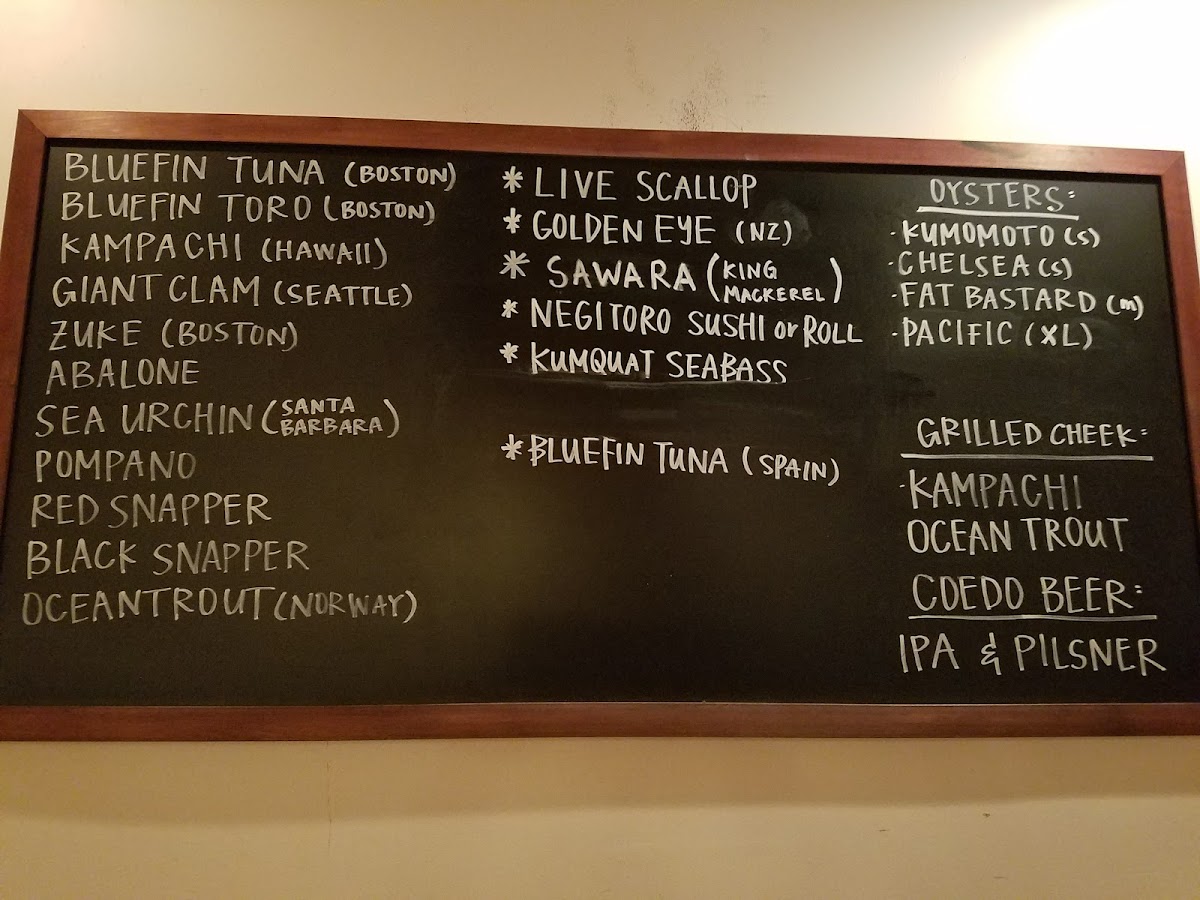 BLUEFIN TUNA (BOSTON)
BLUEFIN TORO (BOSTON)
KAMPACHI (HAWAII)
GIANT CLAM (SEATTLE)
ZUKE (BOSTON)
ABALONE
SEA URCHIN (SANTA BARBARA)
POMPANO
RED SNAPPER
BLACK SNAPPER
OCEAN TROUT (NORWAY)
* LIVE SCALLOP
* GOLDEN EYE (NZ)
* SAWARA (KING MACKEREL)
* NEGITORO SUSHI or ROLL
* KUMQUAT SEABASS
* BLUEFIN TUNA (SPAIN)
OYSTERS:
·KUMOMOTO (S)
·CHELSEA (S)
·FAT BASTARD (m)
·PACIFIC (XL)
GRILLED CHEEK:
·KAMPACHI
OCEAN TROUT
COEDO BEER:
IPA & PILSNER